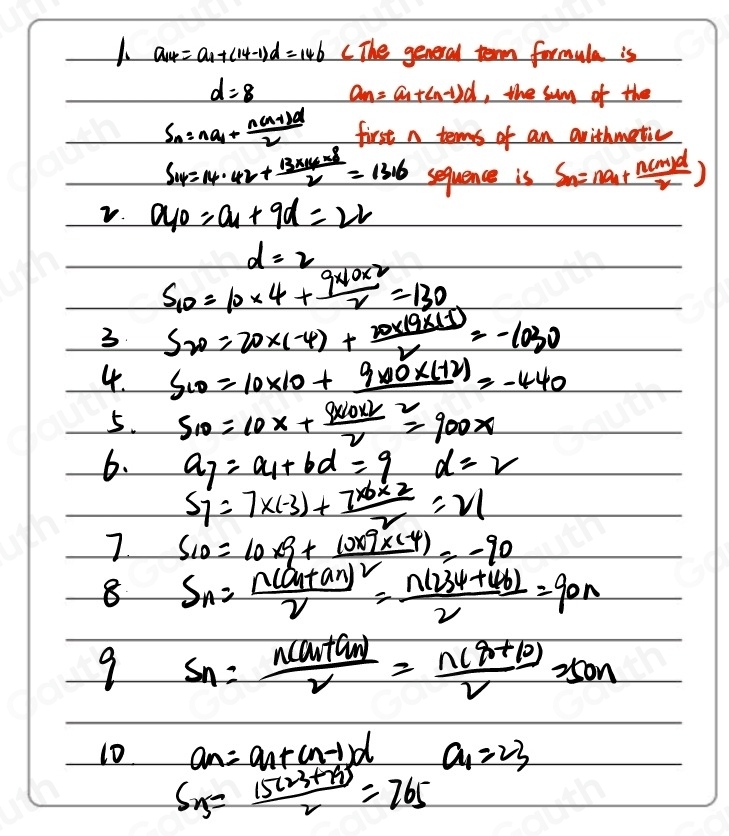 1. a14 = a1+(14-1)d = 146 (The general term formula is
d = 8 an = a1+(n-1)d, the sum of the
Sn = na1 + n(n-1)d/2 first n terms of an arithmetic
S14 = 14·42 + 13×14×8/2 = 1316 sequence is Sn = na1 + n(n-1)d/2)
2. a10 = a1 + 9d = 22
d = 2
S10 = 10×4 + 9×10×2/2 = 130
3. S20 = 20×(-4) + 20×19×(-5)/2 = -1030
4. S10 = 10×10 + 9×10×(-12)/2 = -440
5. S10 = 10x + 9×10×2/2 = 900x
6. a7 = a1 + 6d = 9 d = 2
S7 = 7×(-3) + 7×6×2/2 = 21
7. S10 = 10×9 + 10×9×(-4)/2 = -90
8 Sn = n(a1+an)/2 = n(234+46)/2 = 90n
9 Sn = n(a1+an)/2 = n(90+10)/2 = 50n
10 an = a1+(n-1)d a1 = 23
= 15(23+79)/2 = 765
Gauth